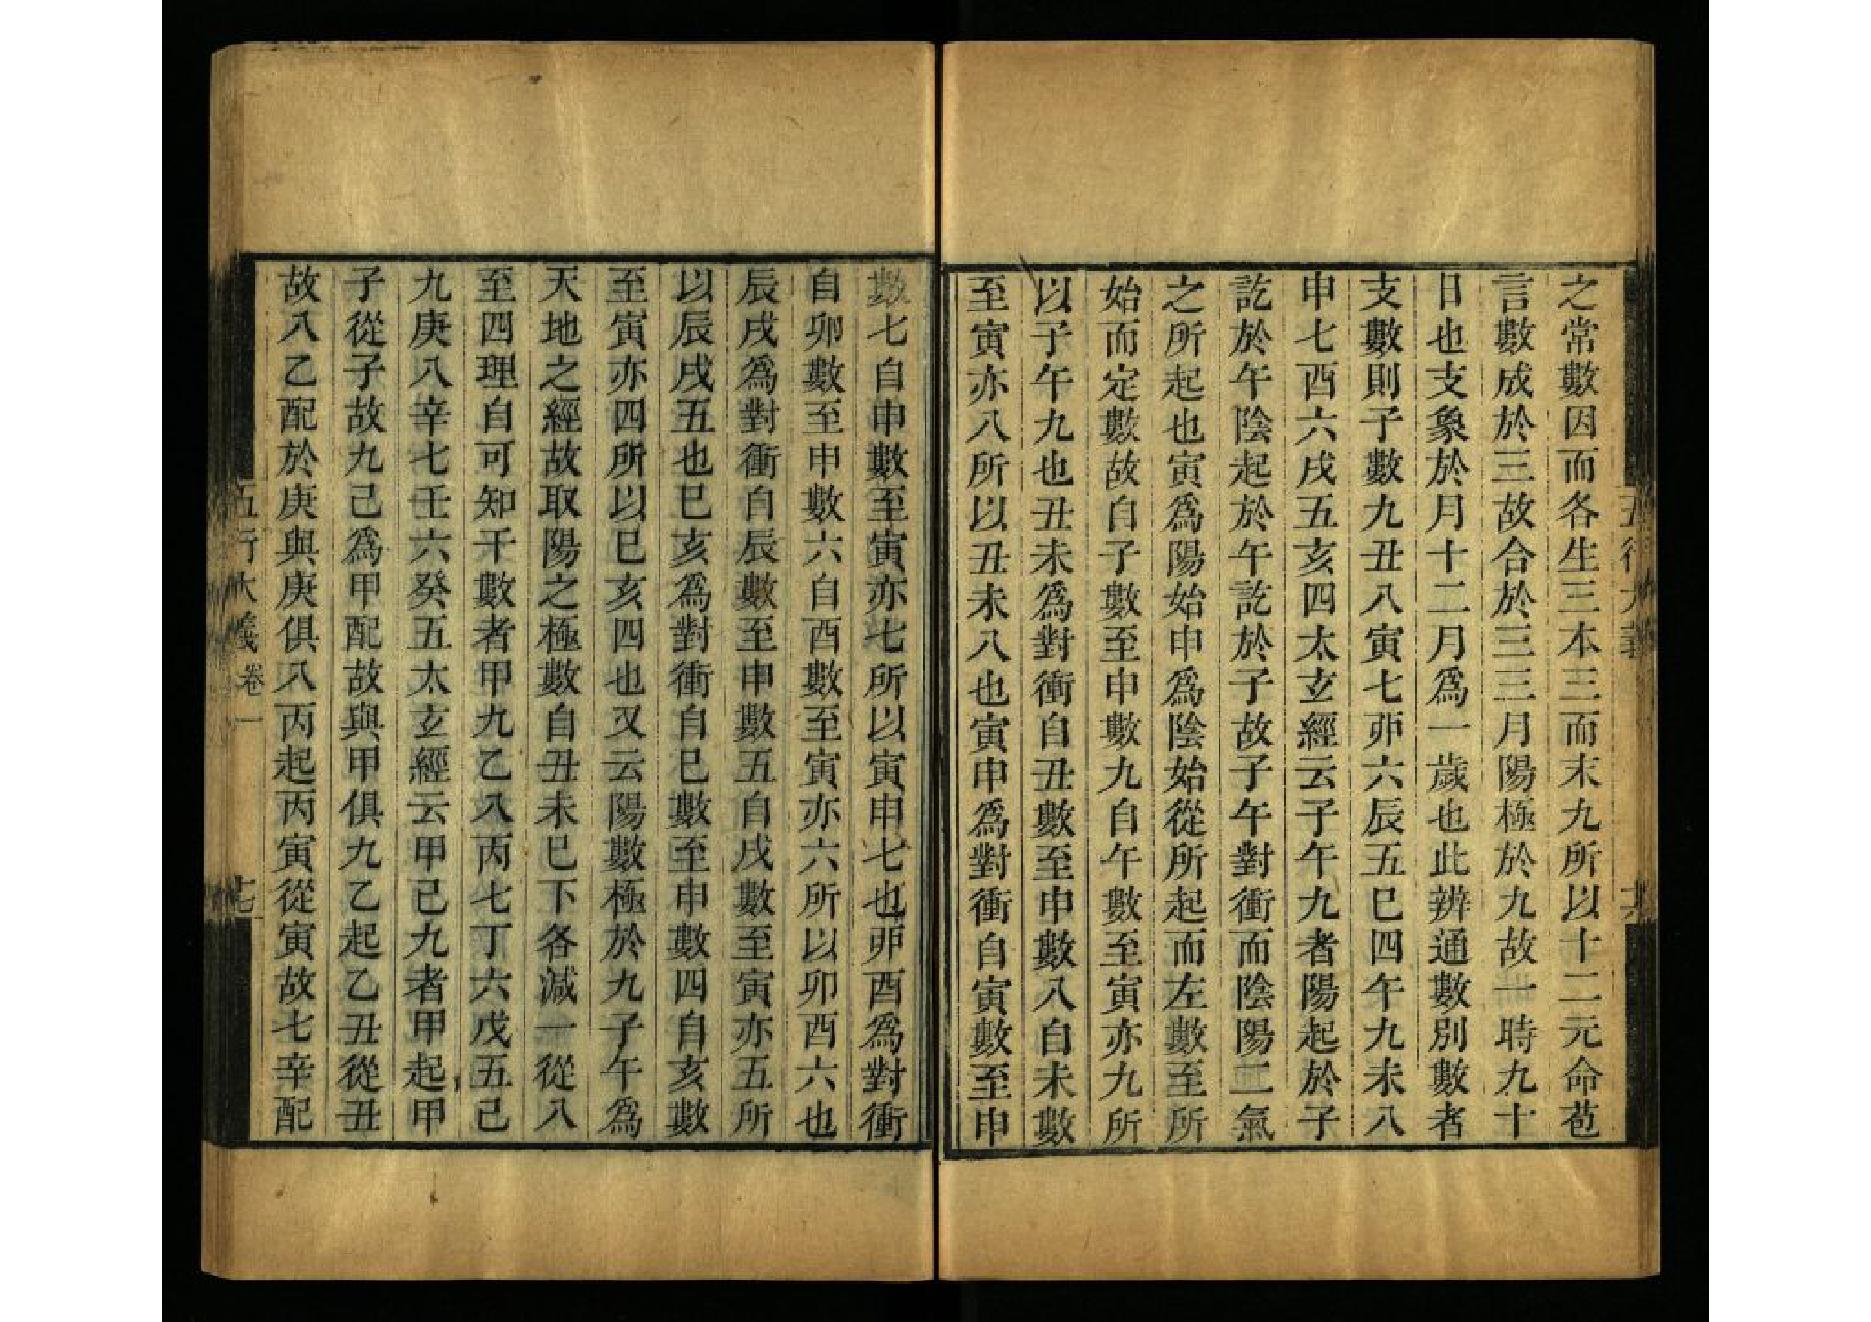 之常數因而各生三本三而末九所以十二元命苞
言數成於三故合於三三月陽極於九故一時九十
日也支象於月十二月爲一歲也此辨通數別數者
支數則子數九丑八寅七丣六辰五巳四午九未八
申七酉六戌五亥四太玄經云子午九者陽起於子
訖於午陰起於午訖於子故子午對衝而陰陽二氣
之所起也寅爲陽始申爲陰始從所起而左數至所
始而定數故自子數至申數九自午數至寅亦九所
以子午九也丑未爲對衝自丑數至申數八自未數
至寅亦八所以丑未八也寅申爲對衝自寅數至申
五行大義 十六
數七自申數至寅亦七所以寅申七也丣酉爲對衝
自卯數至申數六自酉數至寅亦六所以卯酉六也
辰戌爲對衝自辰數至申數五自戌數至寅亦五所
以辰戌五也巳亥爲對衝自巳數至申數四自亥數
至寅亦四所以巳亥四也又云陽數極於九子午爲
天地之經故取陽之極數自丑未已下各減一從八
至四理自可知干數者甲九乙八丙七丁六戊五己
九庚八辛七壬六癸五太玄經云甲己九者甲起甲
子從子故九己爲甲配故與甲俱九乙起乙丑從丑
故八乙配於庚與庚俱八丙起丙寅從寅故七辛配
五行大義 卷一 十七